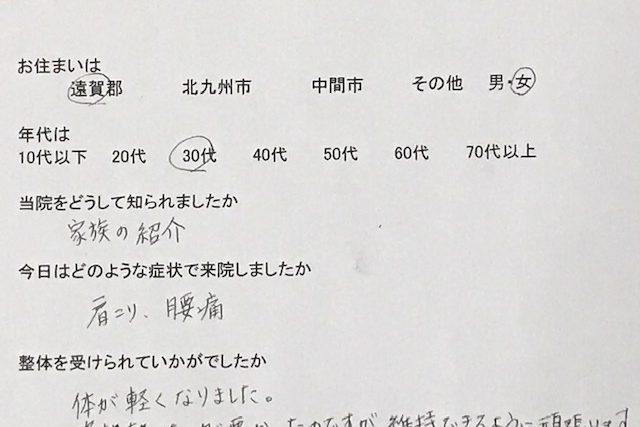 お住まいは
遠賀郡 北九州市 中間市 その他 男・女
年代は
10代以下 20代 30代 40代 50代 60代 70代以上
当院をどうして知られましたか
家族の紹介
今日はどのような症状で来院しましたか
肩こり、腰痛
整体を受けられていかがでしたか
体が軽くなりました。
たのですが維持できるように頑張ります